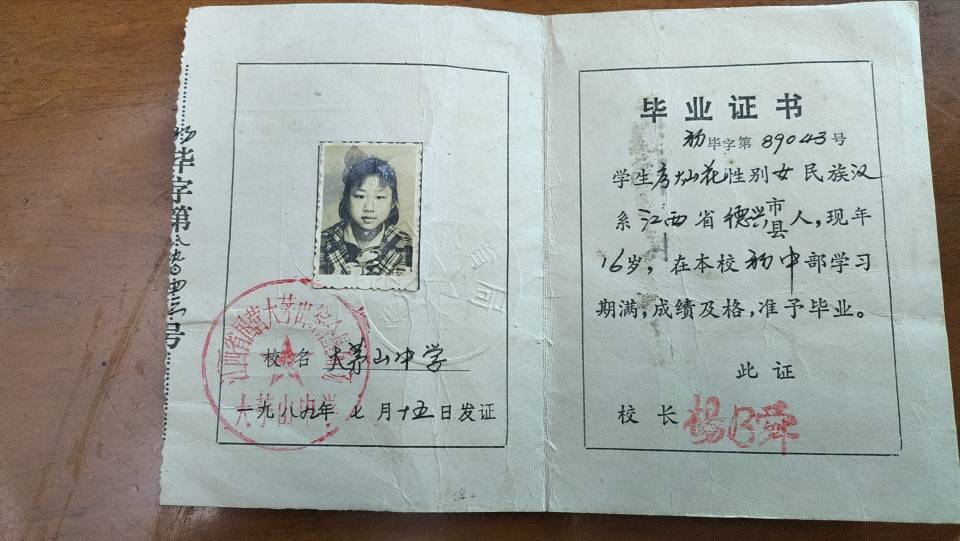 校名 大茅山中学
一九八九年七月十五日发证
大茅山中学
毕业证书
初毕字第89043号
学生 灿花性别女民族汉
系江西省德兴市县人，现年
16岁，在本校初中部学习
期满，成绩及格，准予毕业。
此证
校长
毕字第 号